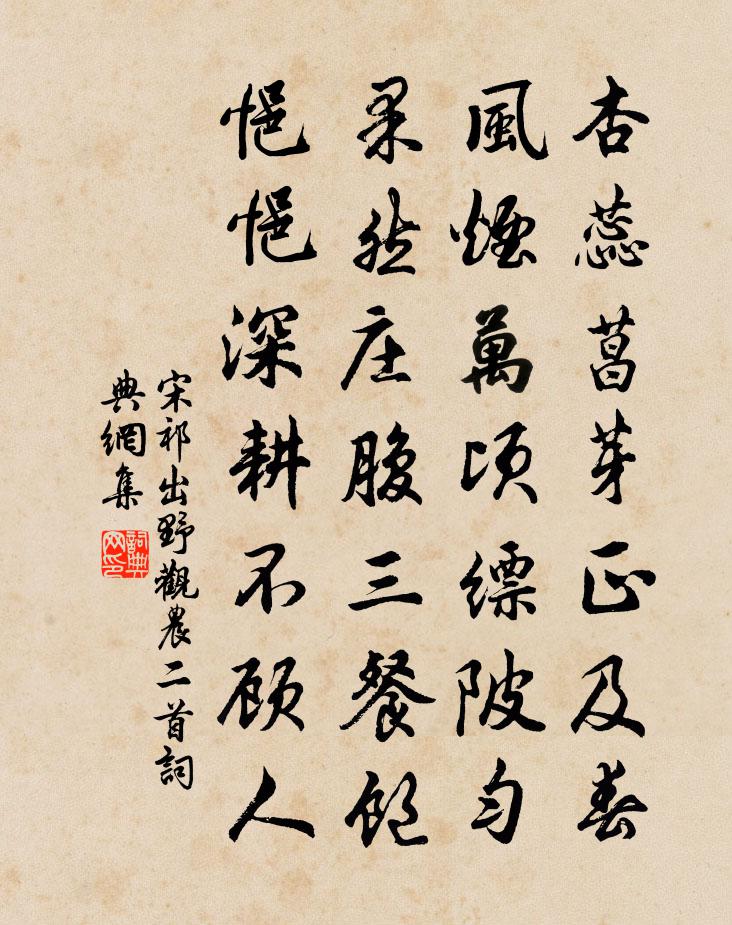 杏蕊菖芽正及春
風煙萬頃縹陂勻
果然庄腹三餐飽
悒悒深耕不顧人
宋祁出野觀農二首詞
典網集
詞典
网印